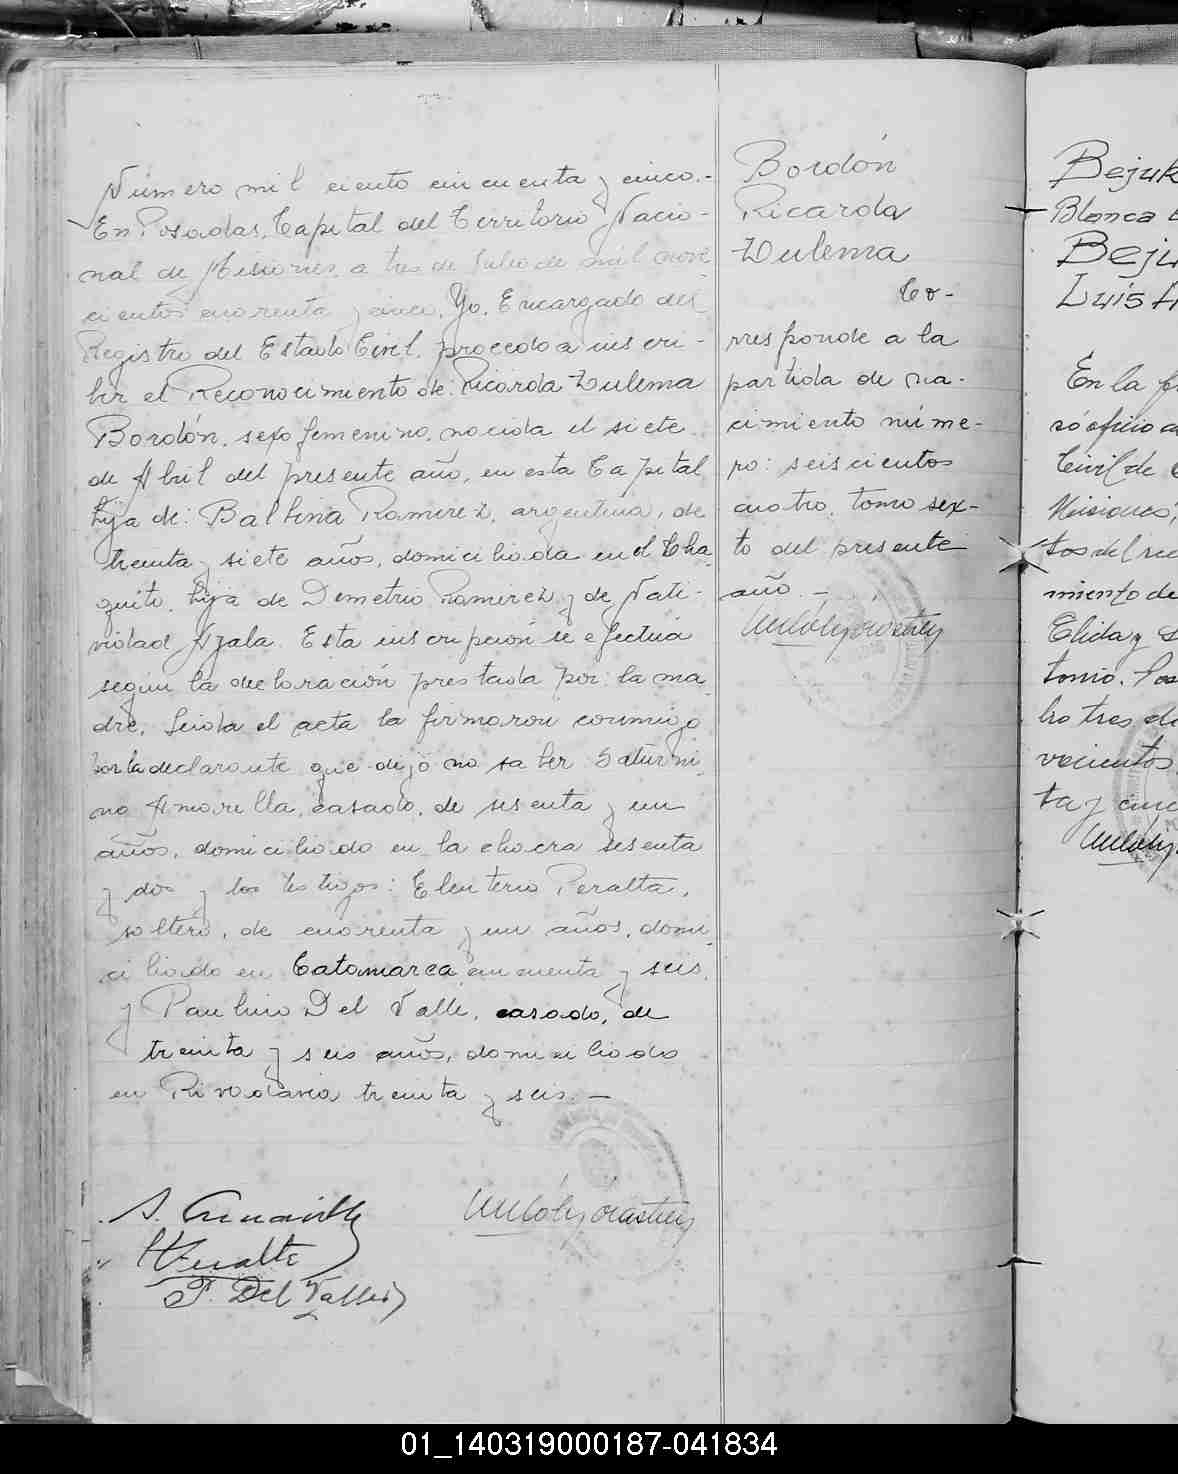 Número mil ciento cincuenta y cinco.-
En Posadas, Capital del Territorio Nacio-
nal de Misiones, a tres de Julio de mil nove
cientos cuarenta y cinco, Yo, Encargado del
Registro del Estado Civil, procedo a inscri-
bir el Reconocimiento de: Ricarda Zulema
Bordón, sexo femenino, nacida el siete
de Abril del presente año, en esta Capital
hija de: Balbina Ramirez, argentina, de
treinta y siete años, domiciliada en el Cha
quito, hija de Demetrio Ramirez y de Nati-
vidad Ayala. Esta inscripción se efectúa
según la declaración prestada por: la ma
dre. Leida el acta la firmaron conmigo
por la declarante que dijo no saber Saturni
no Amarilla, casado, de sesenta y un
años, domiciliado en la chacra sesenta
y dos y los testigos: Eleuterio Peralta,
soltero, de cuarenta y un años, domi
ciliado en Catamarca cincuenta y seis,
y Paulino Del Valle, casado, de
treinta y seis años, domiciliado
en Rivadavia treinta y seis.-
S. Amarilla
Peralta
P. Del Valle
Bordón
Ricarda
Zulema
Co-
rresponde a la
partida de na-
cimiento núme-
ro: seiscientos
cuatro, tomo sex-
to del presente
año.-
Bejuk
Blanca
Beju
Luís A
En la
só oficio a
Civil de
Misiones,
tos del
miento de
Elida y S
tonio.
bro tres de
vecientos
ta y cinc
01_140319000187-041834